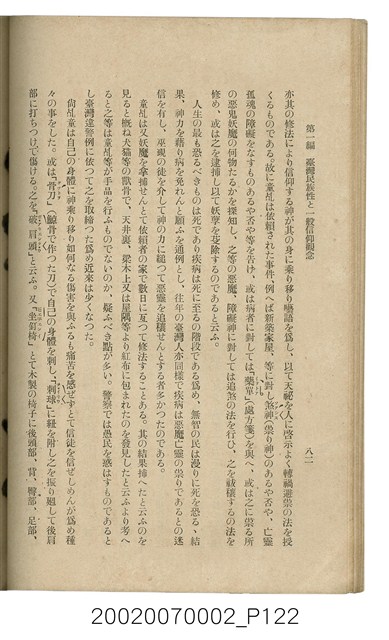 第一編　臺灣民族性と一般信仰觀念
八二
亦其の修法により信仰する神が其の身に乘り移り囈語を爲し、以て天祕を人に啓示よく轉禍避祟の法を授
くるものである。故に童乩は依頼された事件、例へば新築家屋、等に對し煞神(祟り神)のあるや否や、亡靈
孤魂の障礙をなすものあるや否や等を告げ、或は病者に對しては「藥單」(處方箋)を與へ、或は之に祟る所
の惡鬼妖魔の何物たるかを探知し、之等の惡魔、障礙神に對しては追煞の法を行ひ、之を祓穰するの法を
修め、或は之を逮捕し以て妖孽を芟除するのであると云ふ。
人生の最も恐るべきものは死であり疾病は死に至るの階段である爲め、無智の民は漫りに死を恐る、結
果、神力を藉り病を免れんと願ふを通例とし、往年の臺灣人亦同樣で疾病は惡魔亡靈の祟りであるとの迷
信を有し、巫覡の徒を介して神の力に縋つて惡靈を追穰せんとする者多かつたのである。
童乩は又妖魔を拿捕せんとて依頼者の家で數日に亙つて修法することある。其の結果捕へたと云ふのを
見ると概ね犬猫等の獸骨で、天井裏、梁木上又は屋隅等より紅布に包まれたのを發見したと云ふより考へ
ると之等は童乩等が手品を行ふものでないのか、疑ふべき點が多い。警察では愚民を惑はすものであると
し臺灣違警例に依つて之を取締つた爲め近來は少くなつた。
尙乩童は自己の身體に神乘り移り如何なる傷害を與ふるも痛苦を感ぜずとて信徒を信ぜしめんが爲め種
々の事をした。或は「骨刀」(鯊骨で作つた刀)で自己の身體を刺し、「刺球」に紐を附し之を振り廻して後肩
部に打ちつけて傷ける。之を「破肩頭」と云ふ。又「坐釘椅」とて木製の椅子に後頭部、背、臀部、足部、
20020070002_P122